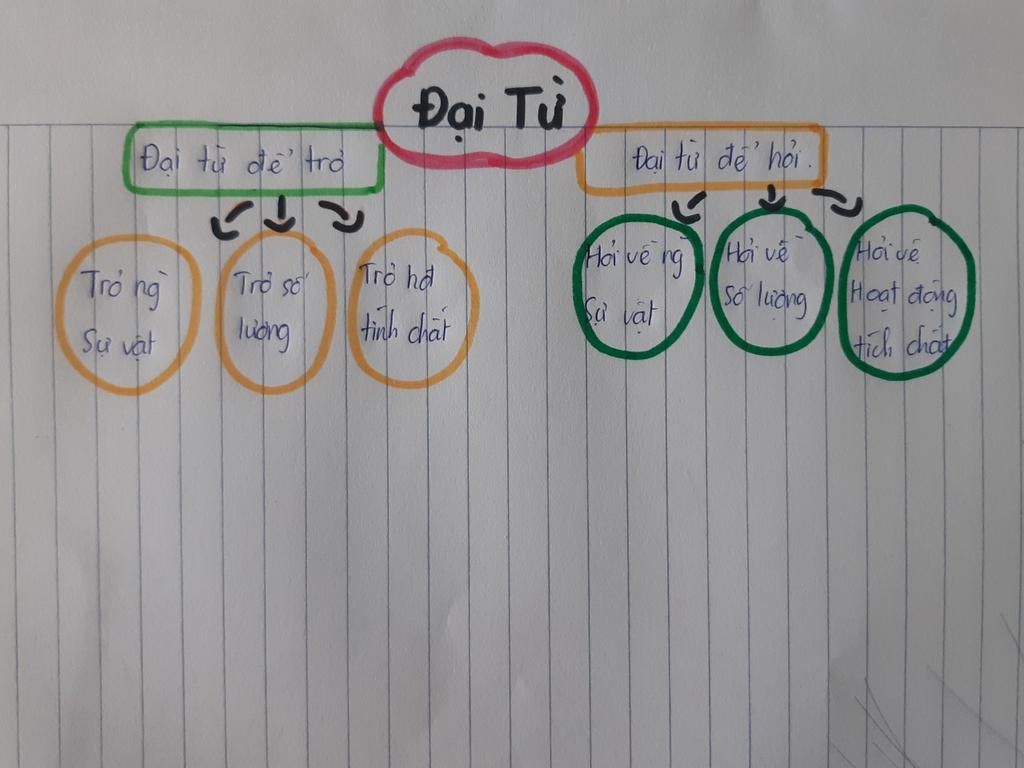 Đại Từ
Đại từ để trỏ
Đại từ để hỏi.
Trỏ ng`
Sự vật
Trỏ số
lượng
Trỏ hđ
tính chất
Hỏi về ng`
Sự vật
Hỏi về
Số lượng
Hỏi về
Hoạt động
tích chất